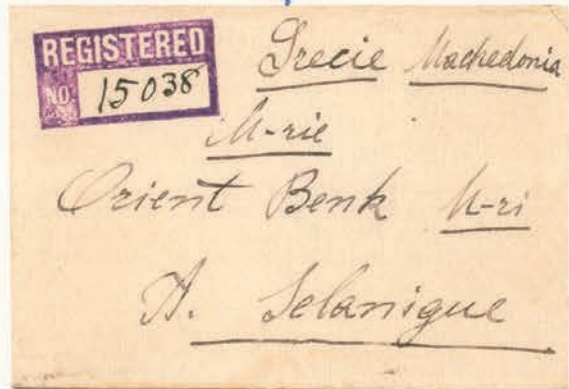 REGISTERED
NO. 15038
Grecie Machedonia
M-rie
Orient Benk M-ri
A. Selanique